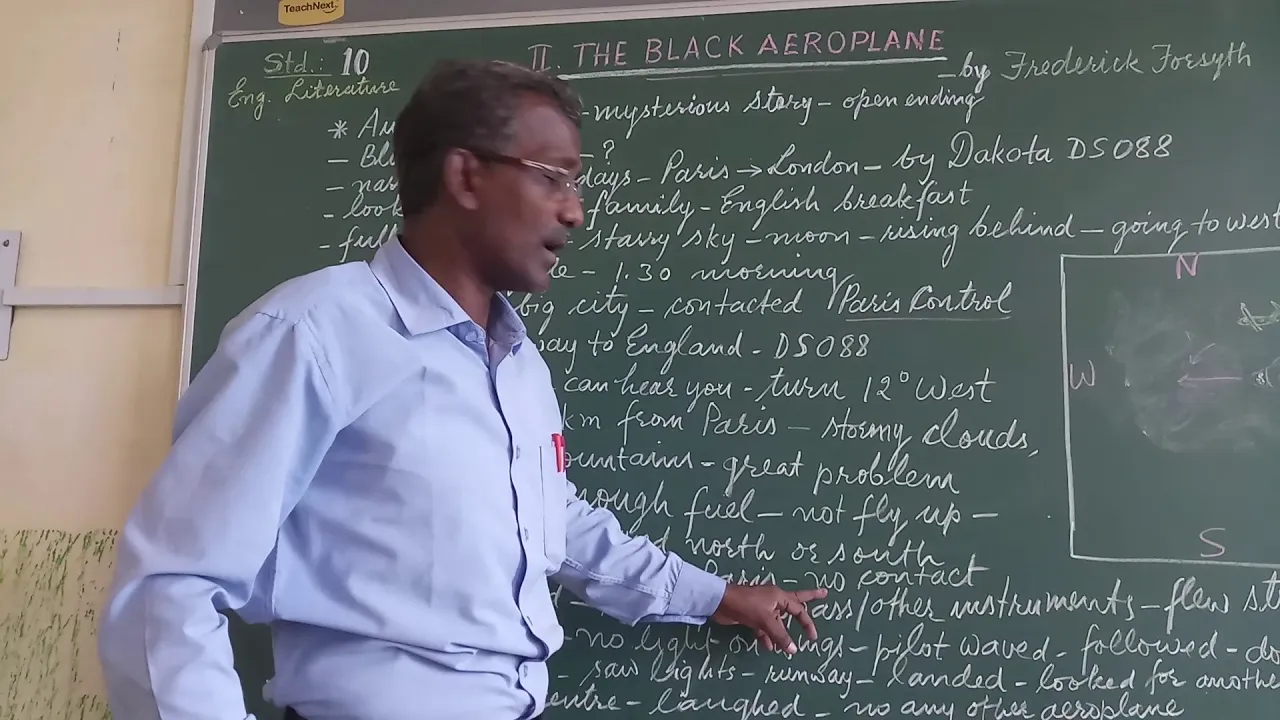 TeachNext
Std.: 10
II. THE BLACK AEROPLANE
Eng. Literature
- by Frederick Forsyth
* - mysterious story - open ending
- - ?
- days - Paris → London - by Dakota DS088
- family - English breakfast
- starry sky - moon - rising behind - going to west
- 1.30 morning
big city - contacted Paris Control
way to England - DS088
can hear you - turn 12° West
km from Paris - stormy clouds,
- great problem
fuel - not fly up -
north or south
Paris - no contact
/other instruments - flew
- no light on wings - pilot waved - followed -
- saw lights - runway - landed - looked for
- laughed - no any other aeroplane
N
W
S